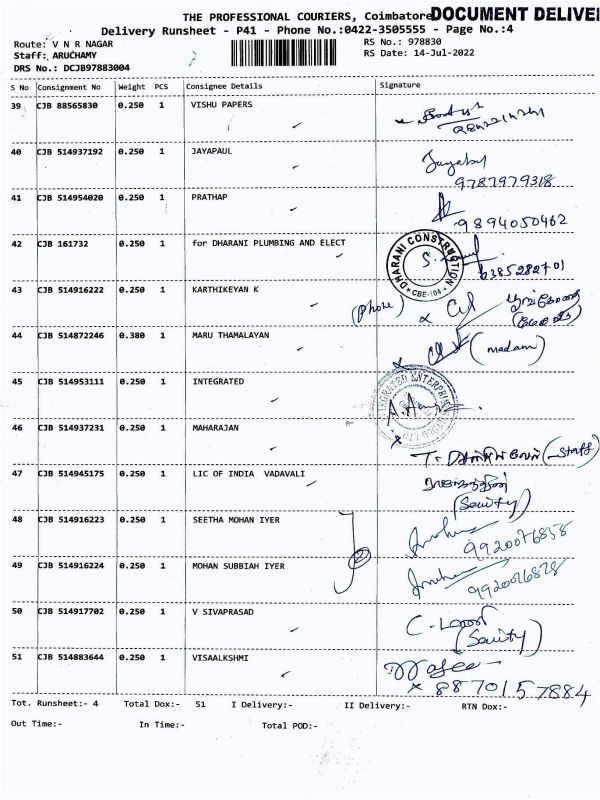 THE PROFESSIONAL COURIERS, Coimbatore DOCUMENT DELIVE
Delivery Runsheet - P41 - Phone No.:0422-3505555 - Page No.:4
Route: V N R NAGAR RS No.: 978830
Staff: ARUCHAMY RS Date: 14-Jul-2022
DRS No.: DCJB97883004
S No Consignment No Weight PCS Consignee Details Signature
39 CJB 88565830 0.250 1 VISHU PAPERS
40 CJB 514937192 0.250 1 JAYAPAUL
9787979318
41 CJB 514954020 0.250 1 PRATHAP
9894050462
42 CJB 161732 0.250 1 for DHARANI PLUMBING AND ELECT
DHARANI CONSTRUCTION
CBE-104
6385282701
43 CJB 514916222 0.250 1 KARTHIKEYAN K
(Phone)
44 CJB 514872246 0.380 1 MARU THAMALAYAN
(madam)
45 CJB 514953111 0.250 1 INTEGRATED
46 CJB 514937231 0.250 1 MAHARAJAN
(Staff)
47 CJB 514945175 0.250 1 LIC OF INDIA VADAVALI
48 CJB 514916223 0.250 1 SEETHA MOHAN IYER
49 CJB 514916224 0.250 1 MOHAN SUBBIAH IYER
50 CJB 514917702 0.250 1 V SIVAPRASAD
51 CJB 514883644 0.250 1 VISAALKSHMI
8870157884
Tot. Runsheet:- 4 Total Dox:- 51 I Delivery:- II Delivery:- RTN Dox:-
Out Time:- In Time:- Total POD:-